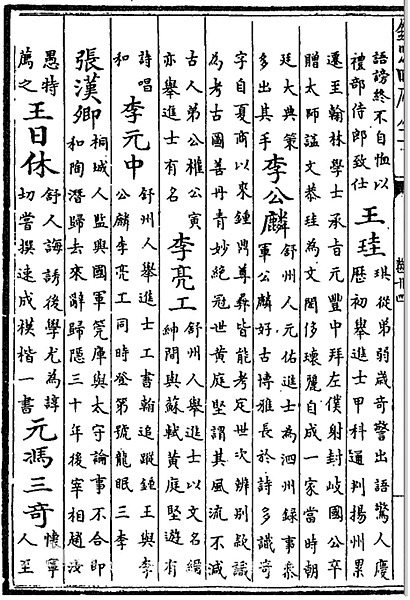 語謗終不自恤以
禮部侍郎致仕
王珪
琪從弟弱歲奇警出語驚人慶
曆初舉進士甲科通判揚州累
遷王翰林學士承旨元豐中拜左僕射封岐國公卒
贈太師謚文恭珪為文閎侈瓌麗自成一家當時朝
廷大典策
多出其手
李公麟
舒州人元佑進士為泗州錄事參
軍公麟好古博雅長於詩多識奇
字自夏商以來鍾鼎尊彝皆能考定世次辨別款識
為考古圖善丹青妙絕冠世黄庭堅謂其風流不減
古人弟公權公寅
亦舉進士有名
李亮工
舒州人舉進士以文名縉
紳間與蘇軾黄庭堅遊有
詩唱
和
李元中
舒州人舉進士工書翰追蹤鍾王與李
公麟李亮工同時登第號龍眠三李
張漢卿
桐城人監興國軍筦庫與太守論事不合即
和陶潛歸去來辭歸隱三十年後宰相趙汝
愚特
薦之
王日休
舒人誨誘後學尤為諄
切嘗撰速成模楷一書
元馮三奇
懷寧
人至